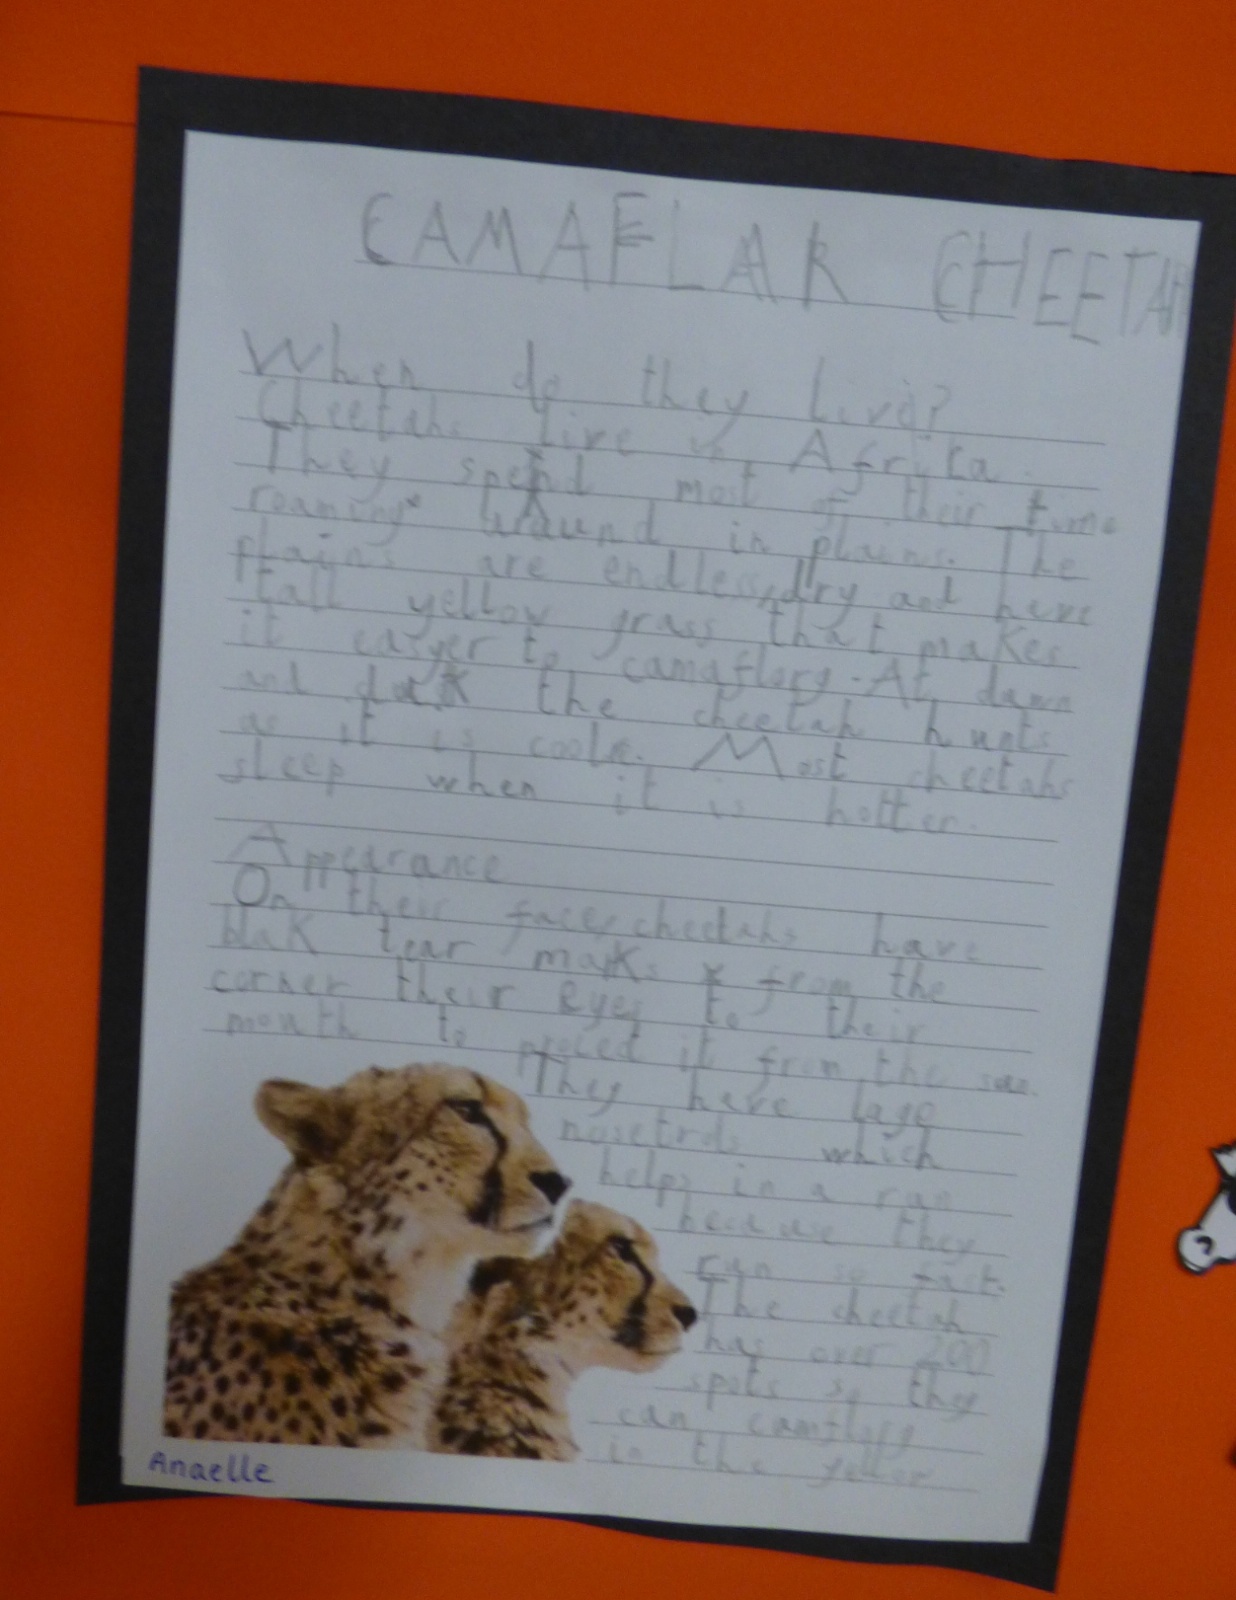 CAMAFLAR CHEETAH
When do they live?
Cheetahs live in Afrika.
They spend most of their time
roaming around in plains. The
plains are endless, dry and have
tall yellow grass that makes
it easyer to camaflarg. At dawn
and dusk the cheetah hunts
as it is cooler. Most cheetahs
sleep when it is hotter.
Appearance
On their faces cheetahs have
blak tear maks from the
corner their eyes to their
mouth to proced it from the sun.
They have lage
nosetrds which
helps in a run
because they
run so fast.
The cheetah
has over 200
spots so they
can camflarg
in the yellow
Anaelle